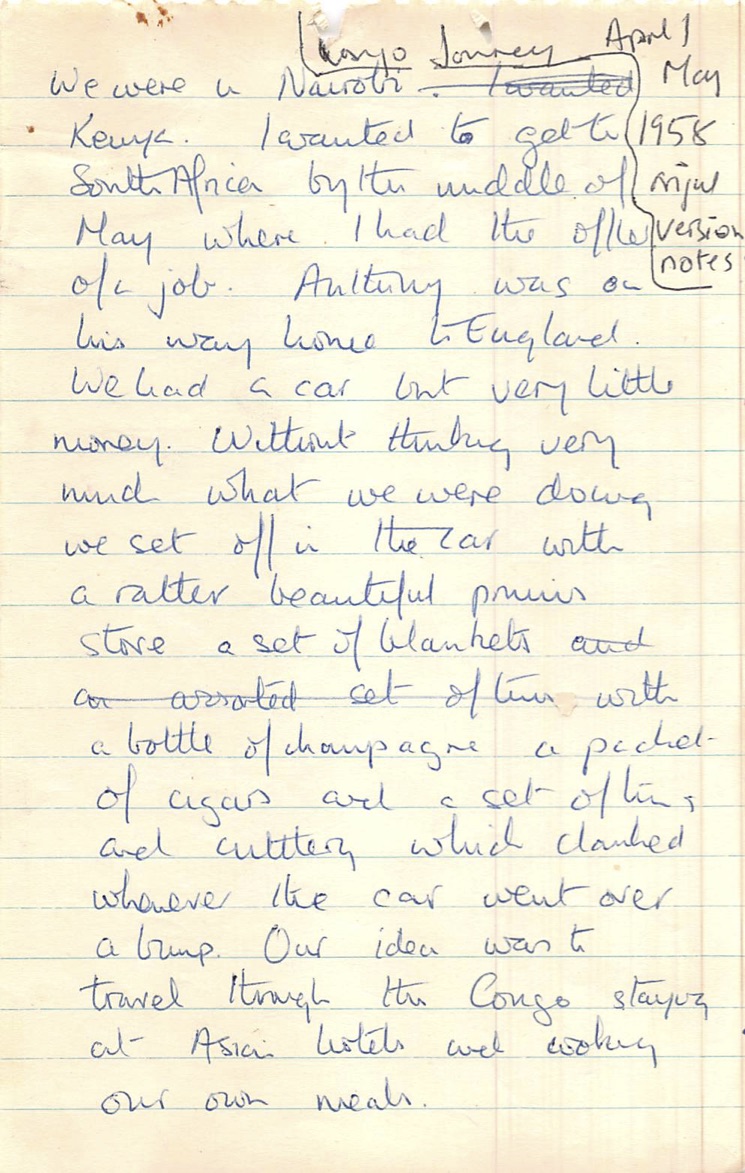 Congo Journey April/
May
1958
version
notes
We were in Nairobi. I wanted
Kenya. I wanted to get to
South Africa by the middle of
May where I had the offer
of a job. Anthony was on
his way home to England.
We had a car but very little
money. Without thinking very
much what we were doing
we set off in the car with
a rather beautiful primus
stove a set of blankets and
an assorted set of tins with
a bottle of champagne a packet
of cigars and a set of tins
and cutlery which clanked
whenever the car went over
a bump. Our idea was to
travel through the Congo staying
at Asian hotels and cooking
our own meals.